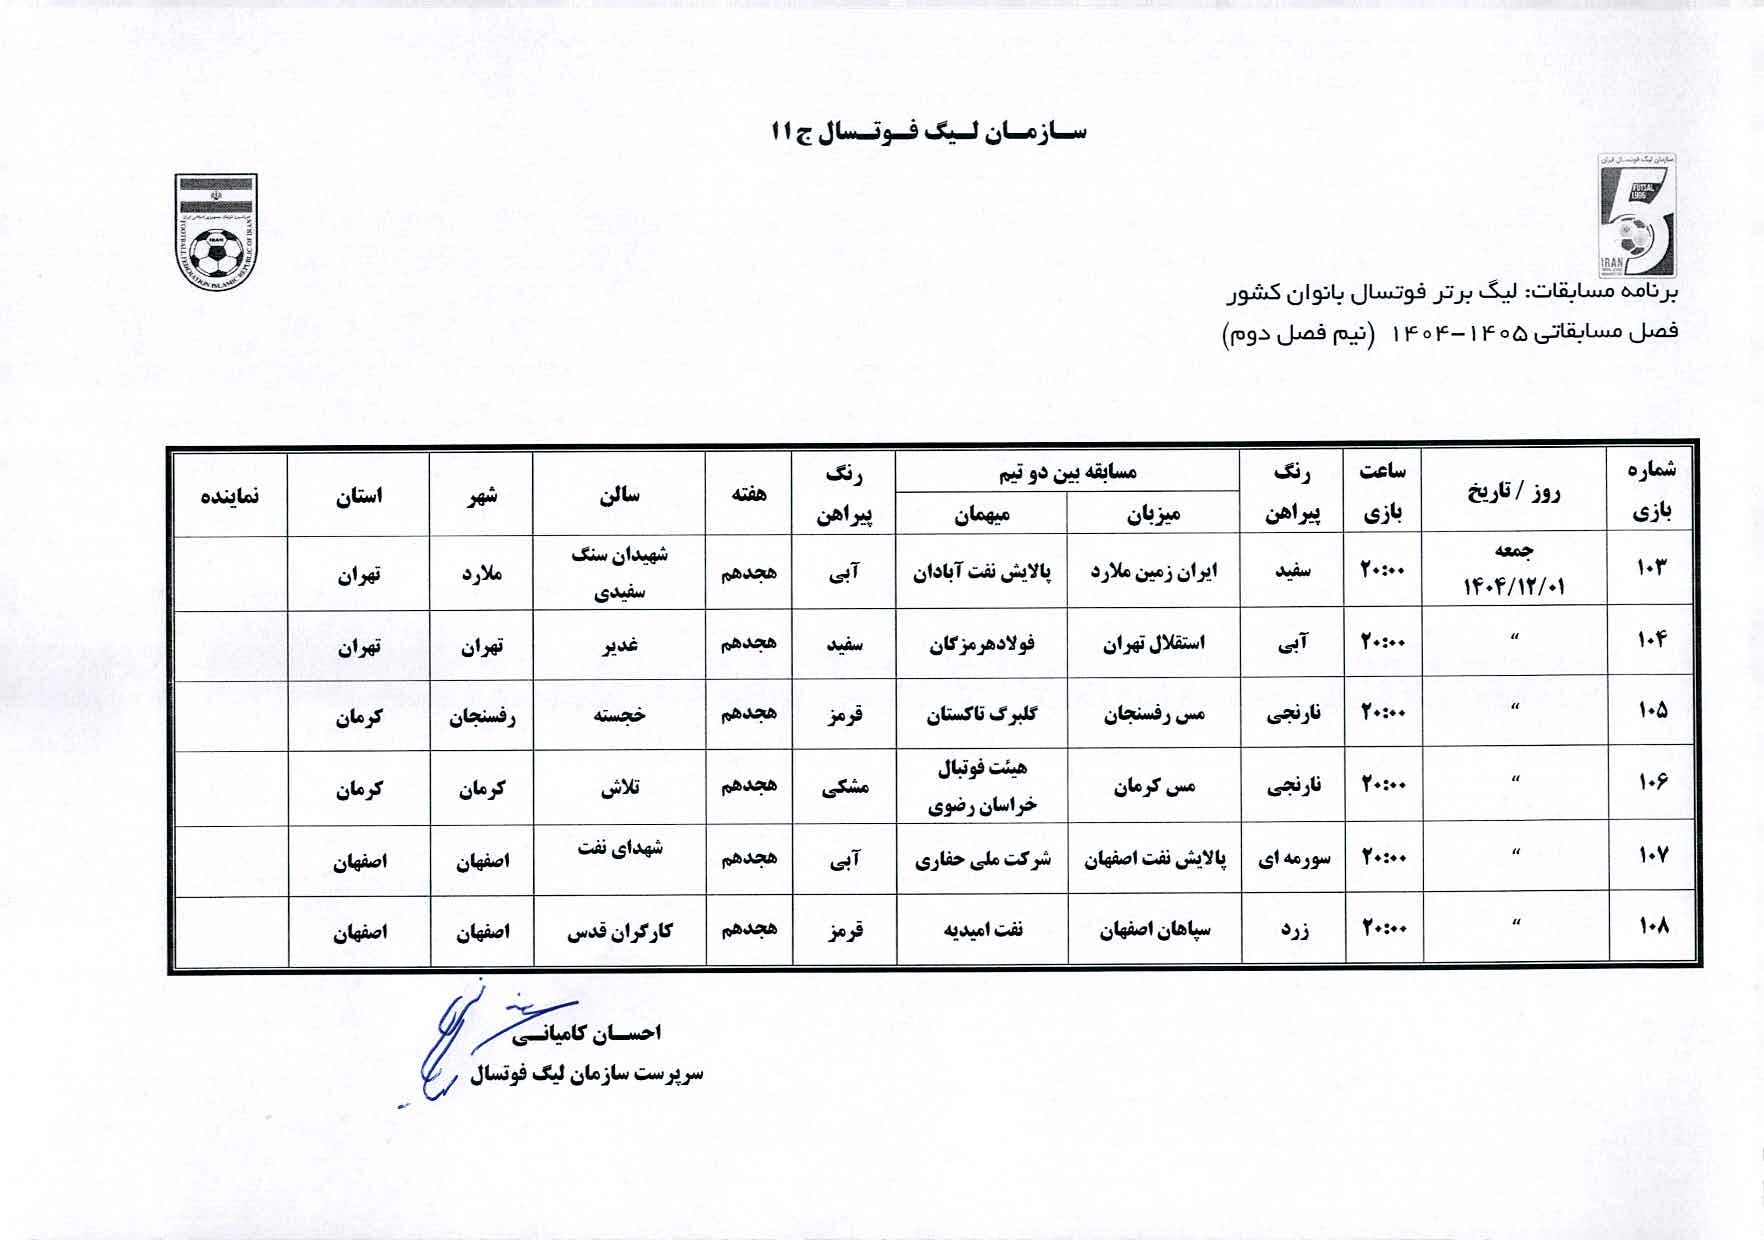 سازمان لیگ فوتسال ج ۱۱
سازمان لیگ فوتسال ایران
FUTSAL
1996
5
IRAN
IRAN
FOOTBALL FEDERATION ISLAMIC REPUBLIC OF IRAN
برنامه مسابقات: لیگ برتر فوتسال بانوان کشور
فصل مسابقاتی ۱۴۰۵-۱۴۰۴ (نیم فصل دوم)
شماره بازی | روز / تاریخ | ساعت بازی | رنگ پیراهن | مسابقه بین دو تیم | رنگ پیراهن | هفته | سالن | شهر | استان | نماینده
میزبان | میهمان
۱۰۳ | جمعه ۱۴۰۴/۱۲/۰۱ | ۲۰:۰۰ | سفید | ایران زمین ملارد | پالایش نفت آبادان | آبی | هجدهم | شهیدان سنگ سفیدی | ملارد | تهران
۱۰۴ | “ | ۲۰:۰۰ | آبی | استقلال تهران | فولادهرمزگان | سفید | هجدهم | غدیر | تهران | تهران
۱۰۵ | “ | ۲۰:۰۰ | نارنجی | مس رفسنجان | گلبرگ تاکستان | قرمز | هجدهم | خجسته | رفسنجان | کرمان
۱۰۶ | “ | ۲۰:۰۰ | نارنجی | مس کرمان | هیئت فوتبال خراسان رضوی | مشکی | هجدهم | تلاش | کرمان | کرمان
۱۰۷ | “ | ۲۰:۰۰ | سورمه ای | پالایش نفت اصفهان | شرکت ملی حفاری | آبی | هجدهم | شهدای نفت | اصفهان | اصفهان
۱۰۸ | “ | ۲۰:۰۰ | زرد | سپاهان اصفهان | نفت امیدیه | قرمز | هجدهم | کارگران قدس | اصفهان | اصفهان
احسان کامیانی
سرپرست سازمان لیگ فوتسال